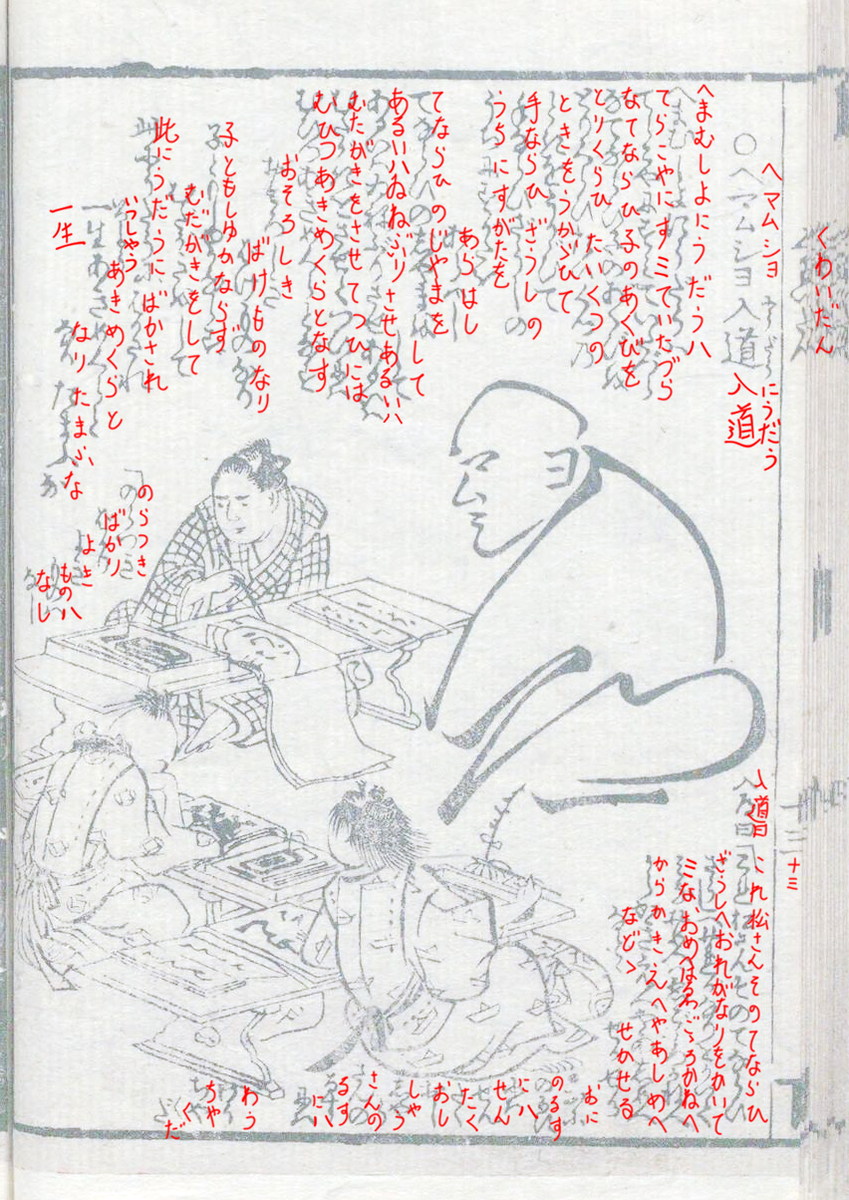 くわいだん
ヘマムショ入道
にうだう
へまむしよにうだうハ
てらこやにすミていたづら
なてならひ子のあくびを
とりくらひたいくつの
ときをうかゞひて
手ならひざうしの
うちにすがたを
あらはし
てならひのじやまを
して
あるいハゐねぶりさせあるいハ
むだがきをさせてつひには
むひつあきめくらとなす
おそろしき
ばけものなり
子ともしゆかならず
むだがきをして
此にうだうにばかされ
いつしやう
一生
あきめくらと
なりたまふな
のらつき
ばかり
よき
ものハ
なし
入道曰
これ松さんそのてならひ
ざうしへおれがなりをかいて
ミなおめへは
からかさ
などゝ
せかせる
十三
おに
のるす
にハ
せん
たく
おし
しやう
さんの
るす
にハ
わう
ちや
くだ